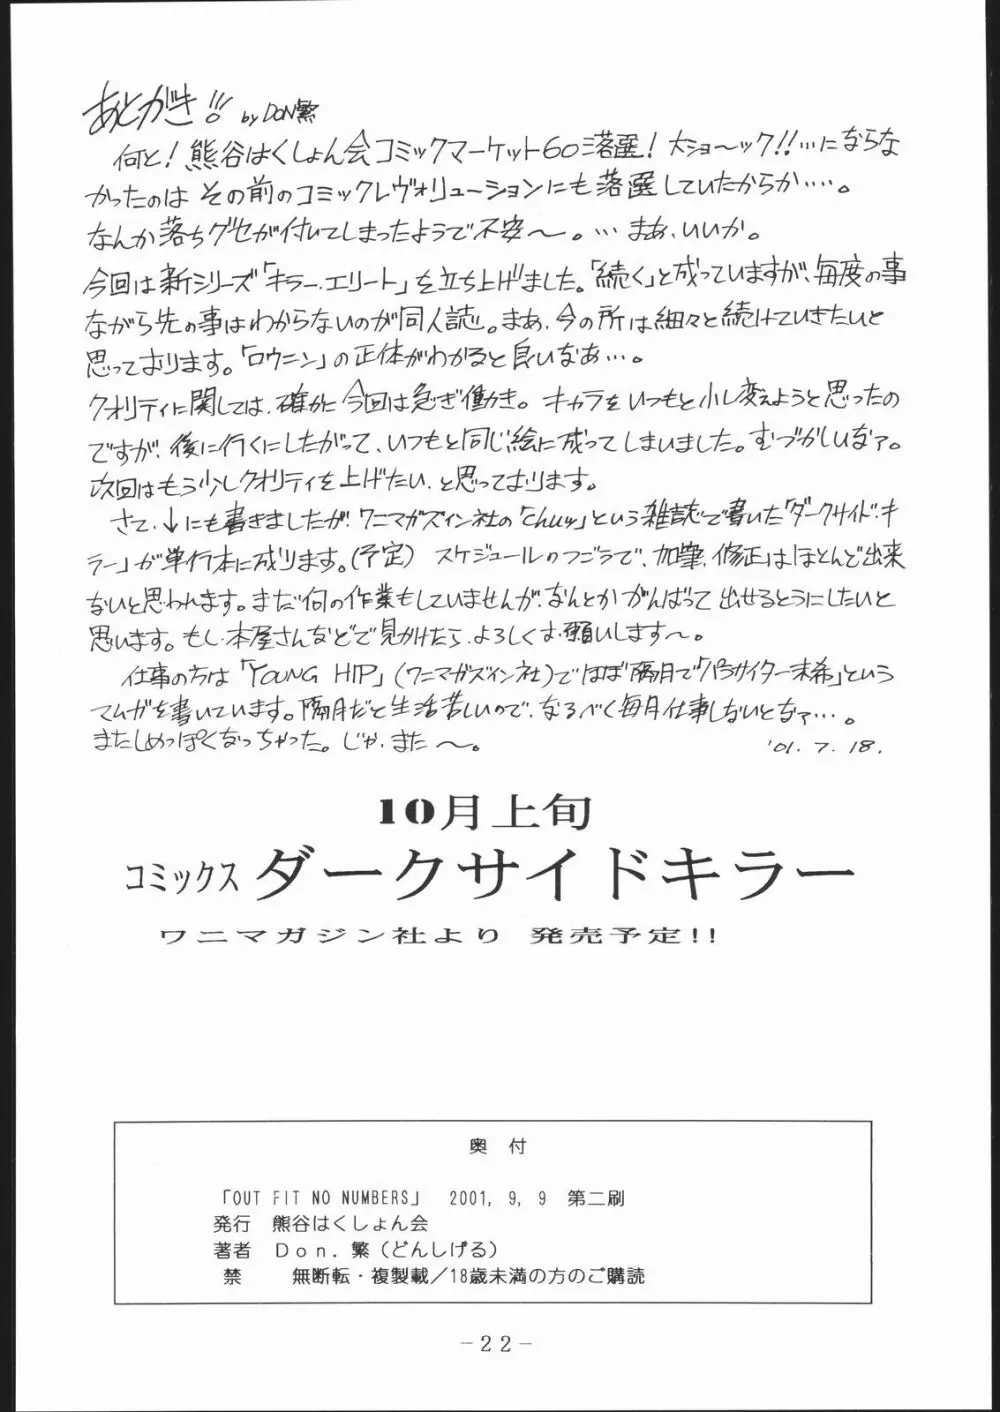 あとがき!! by DON繁
何と!熊谷はくしょん会コミックマーケット60落選!大ショ〜ック!!…にならな
かったのは その前のコミックレヴォリューションにも落選していたからか……。
なんか落ちグセが付いてしまったようで不安〜。… まあ、いいか。
今回は新シリーズ「キラー・エリート」を立ち上げました。「続く」と成っていますが、毎度の事
ながら先の事はわからないのが同人誌。まあ、今の所は細々と続けていきたいと
思っております。「ロウニン」の正体がわかると良いなあ…。
クオリティに関しては、確かに今回は急ぎ働き。キャラをいつもと少し変えようと思ったの
ですが、後に行くにしたがって、いつもと同じ絵に成ってしまいました。むづかしいなァ。
次回はもう少しクオリティを上げたい、と思っております。
さて、↓にも書きましたが、ワニマガズィン社の「Chuッ」という雑誌で書いた「ダークサイド・キ
ラー」が単行本に成ります。(予定) スケジュールのつごうで、加筆、修正はほとんど出来
ないと思われます。まだ何の作業もしていませんが、なんとかがんばって出せるようにしたいと
思います。もし、本屋さんなどで見かけたら、よろしくお願いします〜。
仕事の方は「YOUNG HIP」(ワニマガズィン社)でほぼ隔月で「パラサイター未希」という
マムガを書いています。隔月だと生活苦しいので、なるべく毎月仕事しないとなァ…。
またしめっぽくなっちゃった。じゃ、また〜。 '01.7.18.
10月上旬
コミックス ダークサイドキラー
ワニマガジン社より 発売予定!!
奥 付
「OUT FIT NO NUMBERS」 2001, 9, 9 第二刷
発行 熊谷はくしょん会
著者 Don. 繁(どんしげる)
禁 無断転・複製載/18歳未満の方のご購読
-22-